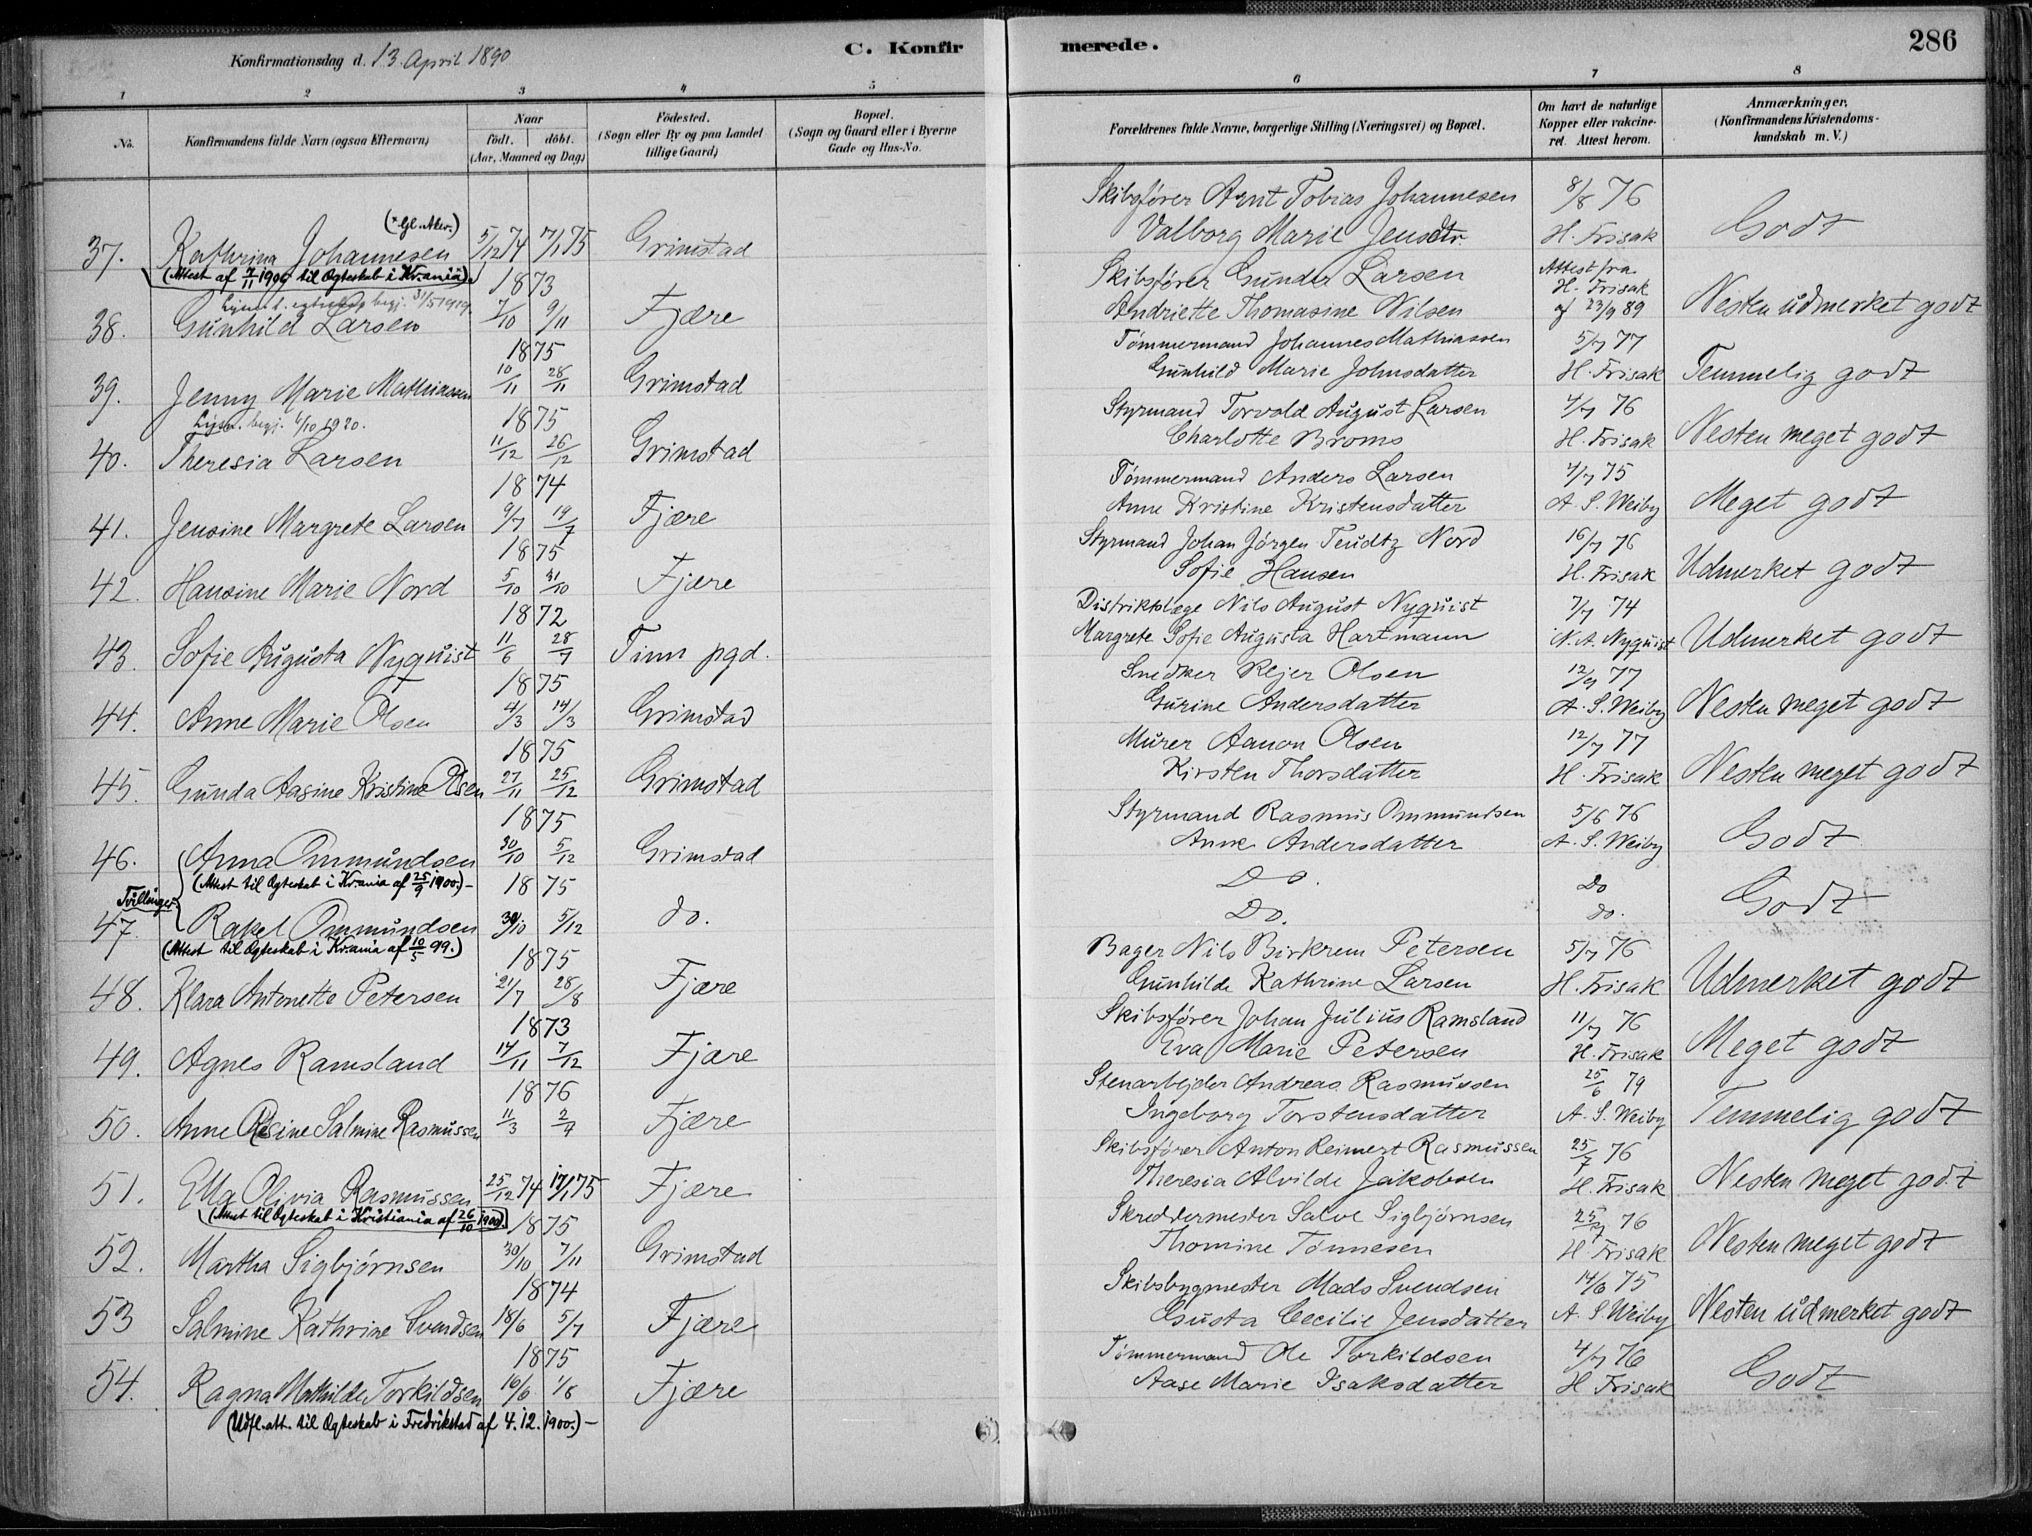 Konfirmationsdag d. 13. April 1890
C. Konfirmerede.
286
1 2 3 4 5 6 7 8
No.
Konfirmandens fulde Navn (ogsaa Efternavn)
Naar
født. døbt.
(Aar, Maaned og Dag)
Fødested.
(Sogn eller By og paa Landet
tillige Gaard)
Bopæl.
(Sogn og Gaard eller i Byerne
Gade og Hus-No.
Forældrenes fulde Navne, borgerlige Stilling (Næringsvei) og Bopæl.
Om havt de naturlige
Kopper eller vakcine-
ret. Attest herom.
Anmærkninger.
(Konfirmandens Kristendoms-
kundskab m. V.)
Skibsfører Arnt Tobias Johannesen 8/8 76
37. Kathrina Johannesen 5/12 74 17/1 75 Grimstad Valborg Marie Jensdtr. H. Frisak Godt
(Attest af 7/11 1900 til Ægteskab i Kr.ania)
1873 Skibsfører Gunder Larsen Attest fra
H. Frisak
31/5 1919
38. Gunhild Larsen 7/10 9/11 Fjære Andriette Thomasine Nilsen af 23/9 89 Nesten udmerket godt
1875 Tømmermand Johannes Mathiassen 5/7 77
39. Jenny Marie Mathiassen 10/11 28/11 Grimstad Gunhild Marie Johnsdatter H. Frisak Temmelig godt
Lysn. begj. 6/10 1920.
1875 Styrmand Torvald August Larsen 4/7 76
40. Theresia Larsen 11/12 26/12 Grimstad Charlotte Broms H. Frisak Nesten meget godt
1874 Tømmermand Anders Larsen 4/7 75
41. Jensine Margrete Larsen 9/7 19/7 Fjære Anne Kristine Kristensdatter A. S. Weiby Meget godt
1875 Styrmand Johan Jørgen Teudtz Nord 16/7 76
42. Hansine Marie Nord 5/10 31/10 Fjære Sofie Hansen H. Frisak Udmerket godt
1872 Distriktslæge Nils August Nyquist 7/7 74
43. Sofie Augusta Nyquist 11/6 28/7 Tinn pgd. Margrete Sofie Augusta Hartmann N. A. Nyquist Udmerket godt
1875 Snedker Rejer Olsen 12/9 77
44. Anne Marie Olsen 4/3 14/3 Grimstad Gurine Andersdatter A. S. Weiby Nesten meget godt
1875 Murer Aanon Olsen 12/7 77
45. Gunda Aasine Kristine Olsen 27/11 25/12 Grimstad Kirsten Thorsdatter H. Frisak Nesten meget godt
1875 Styrmand Rasmus Ommundsen 5/6 76
46. Anna Ommundsen 30/10 5/12 Grimstad Anne Andersdatter A. S. Weiby Godt
(Attest til Ægteskab i Kr.ania af 25/9 1900.)-
1875 Do. Do
Tvillinger.
47. Rakel Ommundsen 30/10 5/12 do. Do. do. Godt
(Attest til Ægteskab i Kr.ania af 10/5 99.)
1875 Bager Nils Birkrem Petersen 5/7 76
48. Klara Antonette Petersen 21/7 28/8 Fjære Gunhilde Kathrine Larsen H. Frisak Udmerket godt
1873 Skibsfører Johan Julius Ramsland 11/7 76
49. Agnes Ramsland 14/11 7/12 Fjære Eva Marie Petersen H. Frisak Meget godt
1876 Stenarbejder Andreas Rasmussen 25/6 79
50. Anne Resine Salmine Rasmussen 11/3 2/4 Fjære Ingeborg Torstensdatter A. S. Weiby Temmelig godt
Skibsfører Anton Reimert Rasmussen 25/7 76
51. Ella Olivia Rasmussen 25/12 74 17/1 75 Fjære Theresia Alvilde Jakobsen H. Frisak Nesten meget godt
(Attest til Ægteskab i Kristiania af 26/10 1900)
1875 Skreddermester Salve Sigbjørnsen 25/7 76
52. Martha Sigbjørnsen 30/10 7/11 Grimstad Thomine Tønnesen H. Frisak Nesten meget godt
1874 Skibsbygmester Mads Svendsen 14/6 75
53 Salmine Kathrine Svendsen 18/6 5/7 Fjære Gusta Cecilie Jensdatter A. S Weiby Nesten udmerket godt
1875 Tømmermand Ole Torkildsen 4/7 76
54. Ragna Mathilde Torkildsen 16/6 1/8 Fjære Aase Marie Isaksdatter H Frisak Godt
(Udfl.att. til Ægteskab i Fredrikstad af 4.12.1900.)-